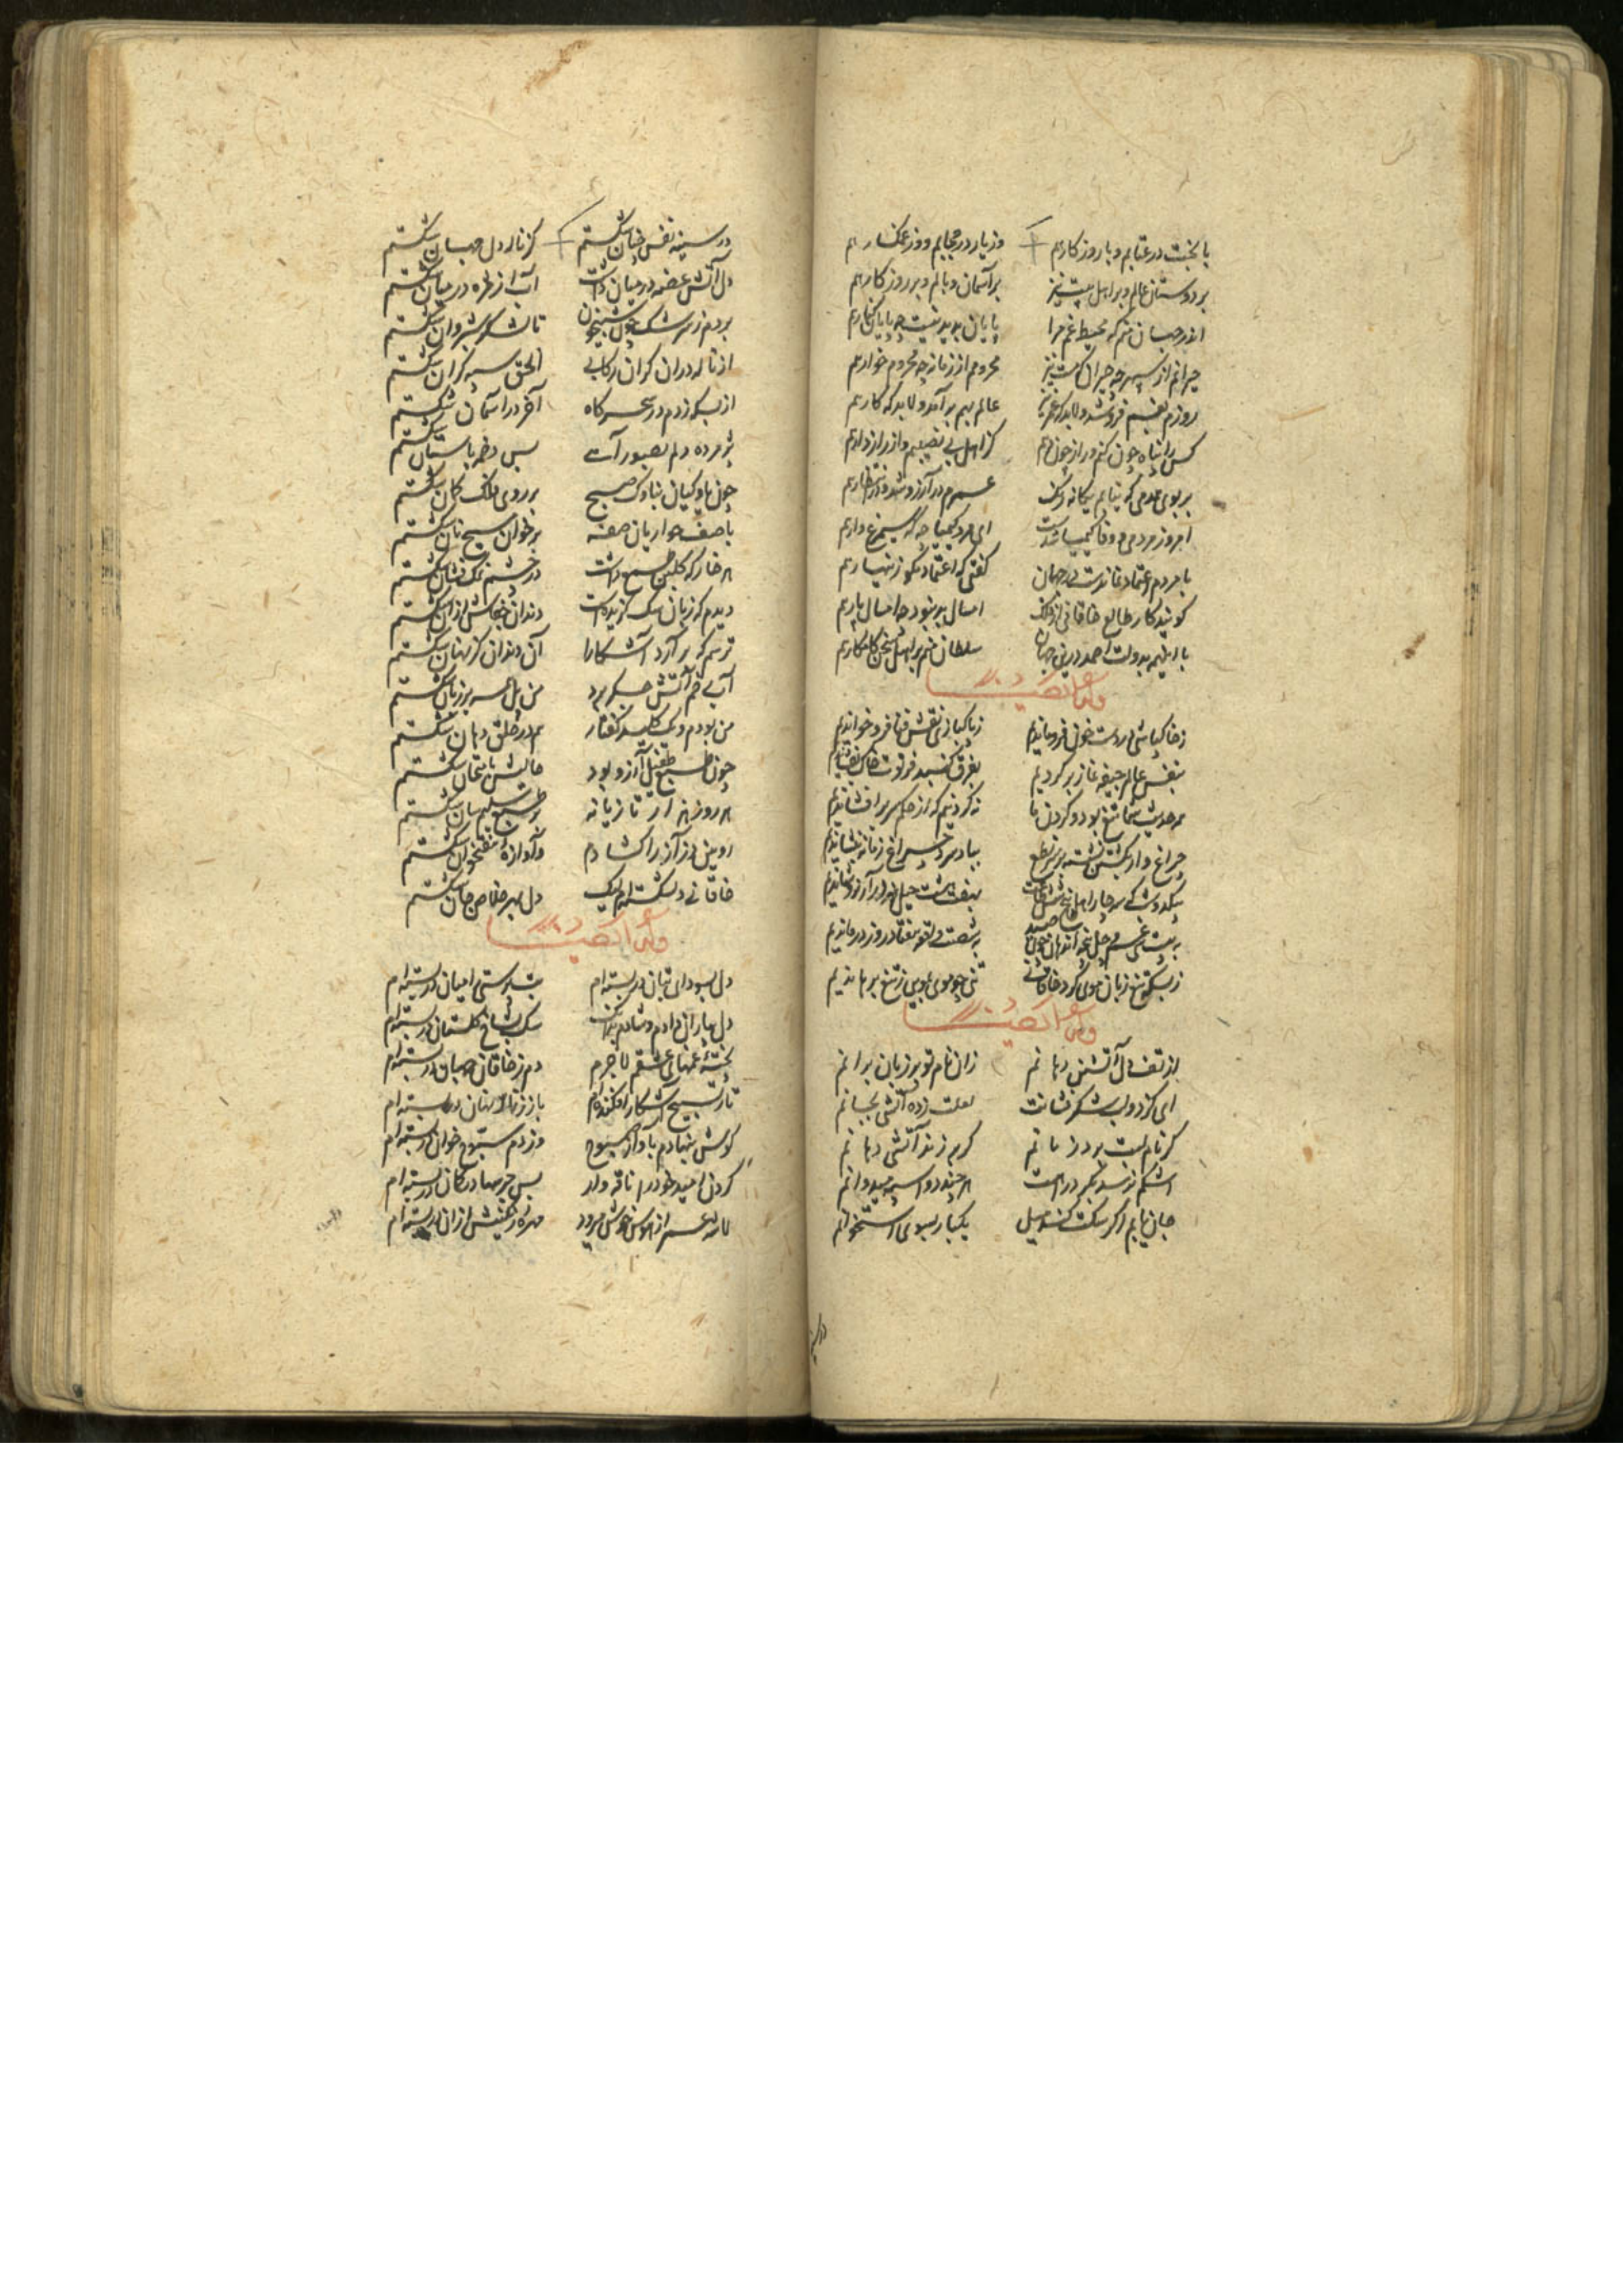 با بخت در عتابم و با روزگار هم وز یار در حجابم و وز غمگسار هم
بر دوستان وبالم و بر اهل بیت نیز بر آسمان وبالم و بر روزگار هم
اندر جهان منم که محیط غم مرا پایان پدید نیست چه پایان کنار هم
حیرانم از سپهر چه حیران که مست نیز محرومم از زمانه چه محروم خوار هم
روزم فرو شد عالم بهم برآمد و لابد که کار هم
کس را پناه چون کنم و راز چون دهم کز اهل بی نصیبم و از رازدار هم
بر بوی همدمی که بیابم یگانه رنگ عمرم در آرزو شد و در انتظار هم
امروز مردمی و وفا کیمیا شدست ای مرد کیمیا چه که سیمرغ وار هم
با مردم اعتماد نماندست در جهان گفتی که اعتماد مگو زینهار هم
گویند کار طالع خاقانی از فلک امسال بد نبود چه امسال پار هم
با این همه بدولت احمد درین جهان سلطان منم بر اهل سخن کامکار هم
وله ایضا
ز خاکپاشی در دست خون فرو ماندیم ز پاکبازی نقش فنا فرو خواندیم
بنفس عالم جیفه نماز برکردیم بفرق گنبد فرتوت خاک بفشاندیم
همه حدیث شما تیغ بود و گردن ما نه گردنیم که از حکم سر برافشاندیم
چراغ وار بکشتن نشسته بر سر نطع بباد سرد چراغ زمانه بنشاندیم
ز بسکه تیغ زبان موی کرد خاقانی تنی چو موی بدین تیغ برهاندیم
وله ایضا
از تف دل آتشین دهانم زان نام تو بر زبان برانم
ای کز دو لب شکر فشانت لعلت زده آتشی بجانم
گر نام لبت برد زبانم گر برزند آتشی دهانم
اشکم نرسد بگرد راهت هر چند دو اسبه میدوانم
جان یابم اگر سگت کند میل یکبار بسوی استخوانم
در سینه
در سینه نفس چنان شکستم کز ناله دل جهان شکستم
دل آتش غصه در میان داشت آب از مژه در میان شکستم
بردم ز سرشک چون شبیخون تا لشکر شبروان شکستم
از ناله در آن گران رکابی الحق سپه گران شکستم
از بسکه زدم در سحرگاه آخر در آسمان شکستم
پژمرده دلم بصور آهی بس دخمه باستان شکستم
چون ماوکیان بناوک صبح بر روی فلک کمان شکستم
با صف حواریان صفه بر خوان مسیح نان شکستم
هر خار که گلبن طمع داشت در چشم نمک فشان شکستم
دیدم که زبان سگ گزیده است دندان جفاش از آن شکستم
ترسم که برآرد آشکارا آن دندان کز نهان شکستم
آبی خم آتش جگر برد من بلبله بر زبان شکستم
من بودم و یک کلید گفتار هم در حلق دهان شکستم
چون طمع طفیل آرزو بود حالیش بامتحان شکستم
هر روز هزار تازیانه بر طمع سلیم سان شکستم
رویین دز آز را گشادم و آوازه هفتخوان شکستم
خاقانی دلشکسته ام لیک دل بهر خلاص جان شکستم
وله ایضا
دل بسودای بتان دربسته ام بت پرستی را میان دربسته ام
دل بیاران دادم و شادم بدانک سگ بشاخ گلستان دربسته ام
پخته غمهای عشقم لاجرم دم ز خاقان جهان دربسته ام
تار تسبیح آشکار افکنده ام باز زنار نهان دربسته ام
گوش بنهادم بآواز صبوح وز دم سبوح خوان دربسته ام
گردن امید خود را ناقه وار بس جرسها در گمان دربسته ام
ناقه عمر از هوس خوش میرود مهره رنگینش از آن دربسته ام